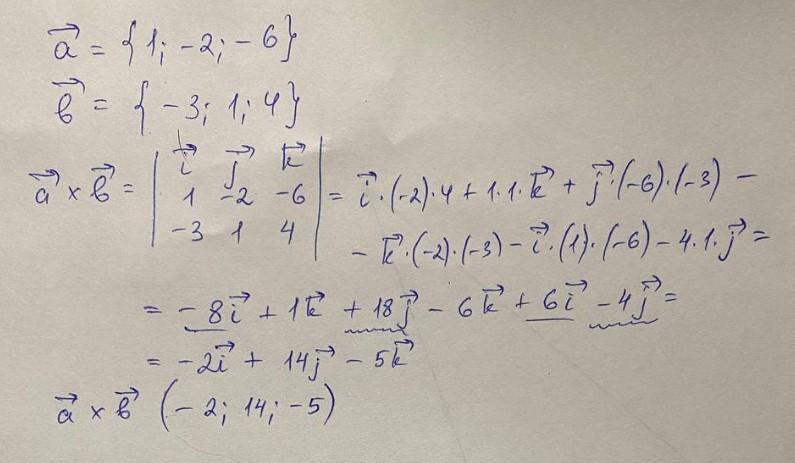 a⃗ = {1; -2; -6}
b⃗ = {-3; 1; 4}
a⃗ × b⃗ = | i⃗ j⃗ k⃗ |
| 1 -2 -6 | = i⃗·(-2)·4 + 1·1·k⃗ + j⃗·(-6)·(-3) -
| -3 1 4 | - k⃗·(-2)·(-3) - i⃗·(1)·(-6) - 4·1·j⃗ =
= -8i⃗ + 1k⃗ + 18j⃗ - 6k⃗ + 6i⃗ - 4j⃗ =
= -2i⃗ + 14j⃗ - 5k⃗
a⃗ × b⃗ (-2; 14; -5)